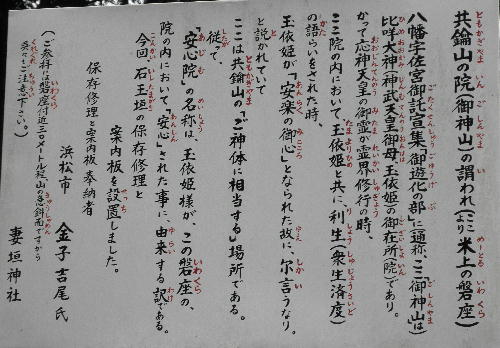 共鑰山の院(御神山)の謂われ(ここ米上の磐座)
八幡宇佐宮御託宣集「御遊化の部」に(通称、ここ御神山)は
比咩大神(神武天皇御母)玉依姫の御在所(院)であり。
かつて応神天皇の御霊が霊界修行の時、
ここ院の内において、玉依姫と共に、利生(衆生済度)
の語らいをされた時、
玉依姫が「安楽の御心」となられた故に、尓言うなり。
と説かれていて
ここは共鑰山の「ご神体に相当する」場所である。
従って、
「安心院」の名称は、玉依姫様が、この磐座の、
院の内において「安心」された事に、由来する訳である。
今回 石玉垣の保存修理と
案内板を設置しました。
保存修理と案内板 奉納者
浜松市 金子吉尾氏
(ご参拝には磐座付近三のメートル程山の急斜面ですから
充々もご注意下さい。)
妻垣神社